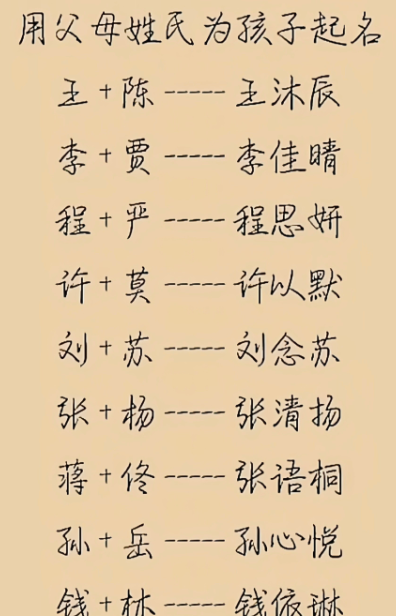 用父母姓氏为孩子起名
王+陈-----王沐辰
李+贾-----李佳晴
程+严-----程思妍
许+莫-----许以默
刘+苏-----刘念苏
张+杨-----张清扬
蒋+佟-----张语桐
孙+岳-----孙心悦
钱+林-----钱依琳